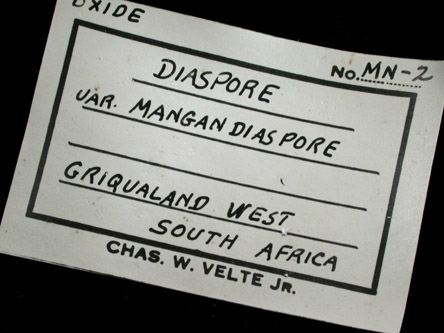 OXIDE
No. MN-2
DIASPORE
VAR. MANGANDIASPORE
GRIQUALAND WEST
SOUTH AFRICA
CHAS. W. VELTE JR.